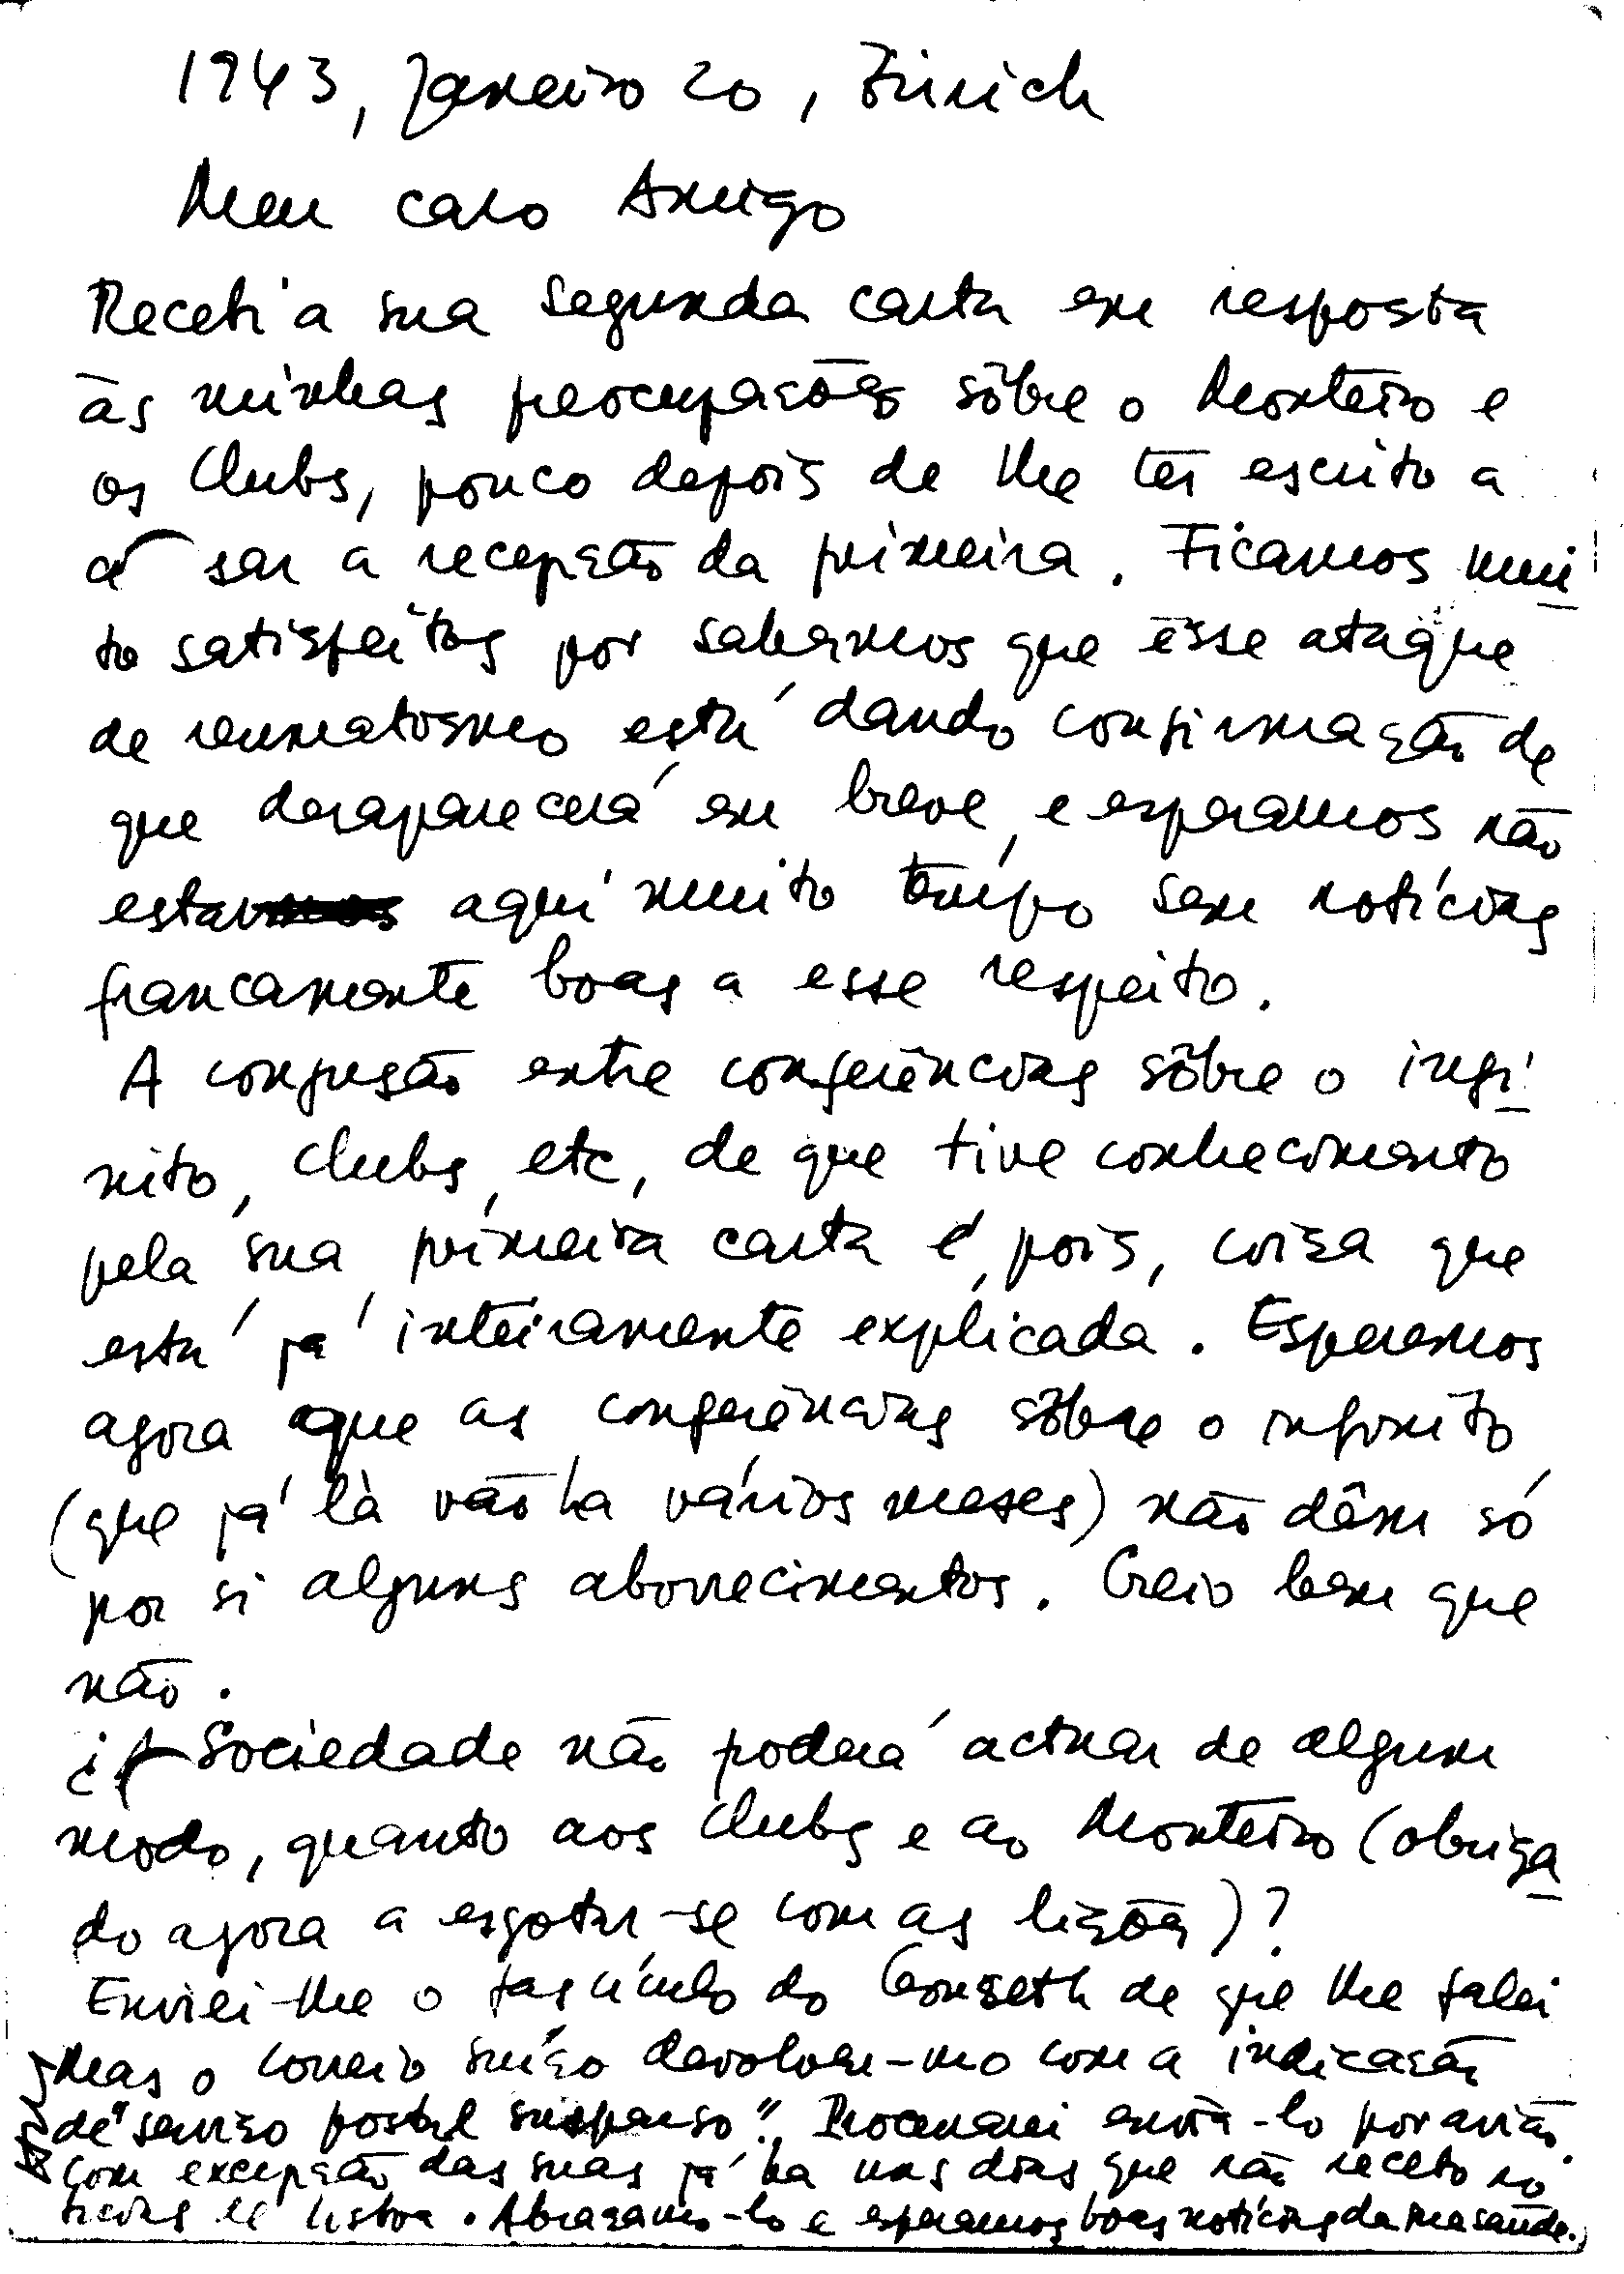 1943, Janeiro 20, Zürich
Meu caro Amigo
Recebi a sua segunda carta em resposta
às minhas preocupações sôbre o Monteiro e
os Clubs, pouco depois de lhe ter escrito a
acusar a recepção da primeira. Ficamos mui
to satisfeitos por sabermos que êsse ataque
de reumatosmo está dando confirmação de
que desaparecerá em breve, e esperamos não
estar aqui muito tempo sem notícias
francamente boas a esse respeito.
A confusão entre conferências sôbre o infi
nito, clubs, etc, de que tive conhecimento
pela sua primeira carta é, pois, coisa que
está já inteiramente explicada. Esperemos
agora que as conferências sôbre o infinito
(que já lá vão ha vários meses) não dêem só
por si alguns aborrecimentos. Creio bem que
não.
¿A Sociedade não poderá actuar de algum
modo, quanto aos Clubs e ao Monteiro (obriga
do agora a esgotar-se com as lições)?
Enviei-lhe o fascículo do Gonseth de que lhe falei
Mas o correio suíço devolveu-mo com a indicação
de "serviço postal suspenso". Procurarei enviá-lo por avião.
Com excepção das suas já ha uns dias que não recebo no
ticias de Lisboa. Abraçamo-lo e esperamos boas notícias da sua saúde.